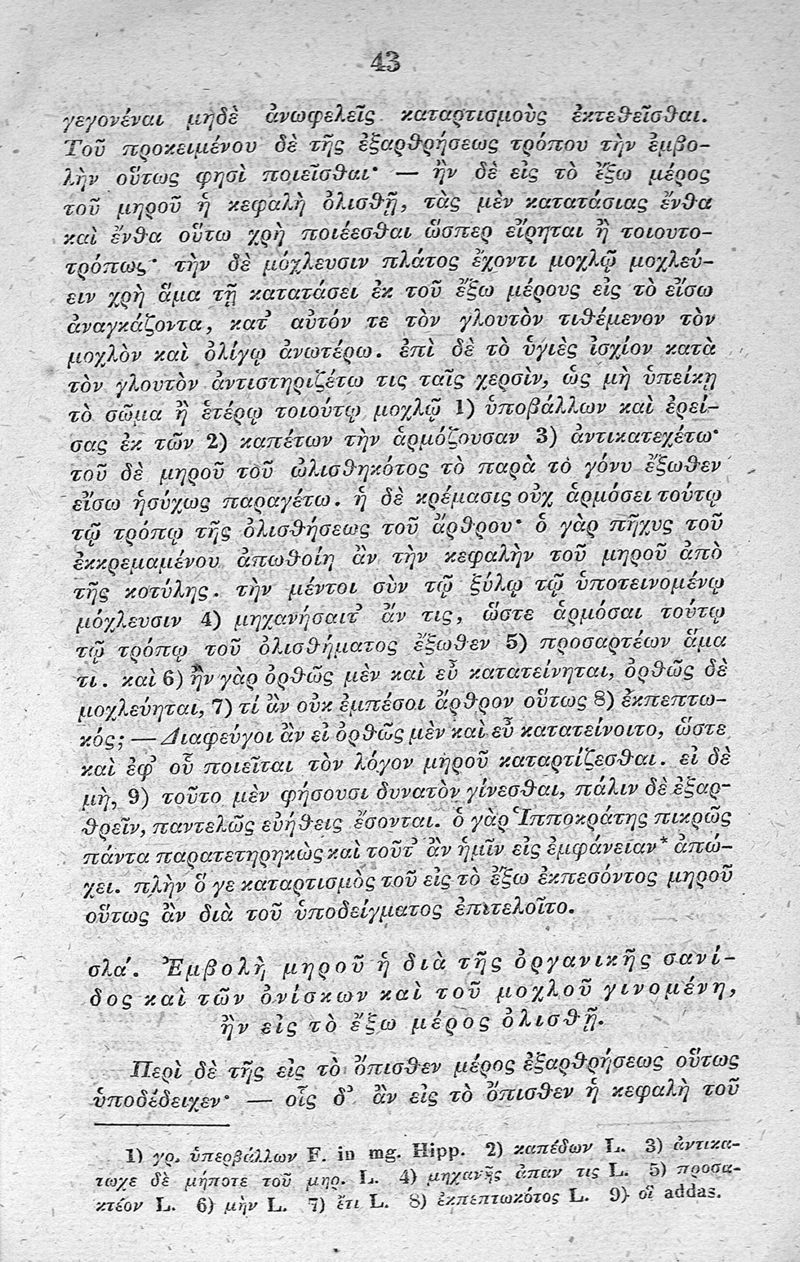 43
γεγονέναι μηδὲ ἀνωφελεῖς καταρτισμοὺς ἐκτεθεῖσθαι.
Τοῦ προκειμένου δὲ τῆς ἐξαρθρήσεως τρόπου τὴν ἐμβο-
λὴν οὕτως φησὶ ποιεῖσθαι· — ἢν δὲ εἰς τὸ ἔξω μέρος
τοῦ μηροῦ ἡ κεφαλὴ ὀλισθῇ, τὰς μὲν κατατάσιας ἔνθα
καὶ ἔνθα οὕτω χρὴ ποιέεσθαι ὥσπερ εἴρηται ἢ τοιουτο-
τρόπως· τὴν δὲ μόχλευσιν πλάτος ἔχοντι μοχλῷ μοχλεύ-
ειν χρὴ ἅμα τῇ κατατάσει ἐκ τοῦ ἔξω μέρους εἰς τὸ εἴσω
ἀναγκάζοντα, κατ᾽ αὐτόν τε τὸν γλουτὸν τιθέμενον τὸν
μοχλὸν καὶ ὀλίγῳ ἀνωτέρω. ἐπὶ δὲ τὸ ὑγιὲς ἰσχίον κατὰ
τὸν γλουτὸν ἀντιστηριζέτω τις ταῖς χερσὶν, ὡς μὴ ὑπείκῃ
τὸ σῶμα ἢ ἑτέρῳ τοιούτῳ μοχλῷ 1) ὑποβάλλων καὶ ἐρεί-
σας ἐκ τῶν 2) καπέτων τὴν ἁρμόζουσαν 3) ἀντικατεχέτω·
τοῦ δὲ μηροῦ τοῦ ὠλισθηκότος τὸ παρὰ τὸ γόνυ ἔξωθεν
εἴσω ἡσύχως παραγέτω. ἡ δὲ κρέμασις οὐχ ἁρμόσει τούτῳ
τῷ τρόπῳ τῆς ὀλισθήσεως τοῦ ἄρθρου· ὁ γὰρ πῆχυς τοῦ
ἐκκρεμαμένου ἀπωθοίη ἂν τὴν κεφαλὴν τοῦ μηροῦ ἀπὸ
τῆς κοτύλης. τὴν μέντοι σὺν τῷ ξύλῳ τῷ ὑποτεινομένῳ
μόχλευσιν 4) μηχανήσαιτ᾽ ἄν τις, ὥστε ἁρμόσαι τούτῳ
τῷ τρόπῳ τοῦ ὀλισθήματος ἔξωθεν 5) προσαρτέων ἅμα
τι. καὶ 6) ἢν γὰρ ὀρθῶς μὲν καὶ εὖ κατατείνηται, ὀρθῶς δὲ
μοχλεύηται, 7) τί ἂν οὐκ ἐμπέσοι ἄρθρον οὕτως 8) ἐκπεπτω-
κός; — Διαφεύγοι ἂν εἰ ὀρθῶς μὲν καὶ εὖ κατατείνοιτο, ὥστε
καὶ ἐφ᾽ οὗ ποιεῖται τὸν λόγον μηροῦ καταρτίζεσθαι. εἰ δὲ
μὴ, 9) τοῦτο μὲν φήσουσι δυνατὸν γίνεσθαι, πάλιν δὲ ἐξαρ-
θρεῖν, παντελῶς εὐήθεις ἔσονται. ὁ γὰρ Ἱπποκράτης πικρῶς
πάντα παρατετηρηκὼς καὶ τοῦτ᾽ ἂν ἡμῖν εἰς ἐμφάνειαν* ἀπώ-
χει. πλὴν ὅ γε καταρτισμὸς τοῦ εἰς τὸ ἔξω ἐκπεσόντος μηροῦ
οὕτως ἂν διὰ τοῦ ὑποδείγματος ἐπιτελοῖτο.
σλα΄. Ἐμβολὴ μηροῦ ἡ διὰ τῆς ὀργανικῆς σανί-
δος καὶ τῶν ὀνίσκων καὶ τοῦ μοχλοῦ γινομένη,
ἢν εἰς τὸ ἔξω μέρος ὀλισθῇ.
Περὶ δὲ τῆς εἰς τὸ ὄπισθεν μέρος ἐξαρθρήσεως οὕτως
ὑποδέδειχεν· — οἷς δ᾽ ἂν εἰς τὸ ὄπισθεν ἡ κεφαλὴ τοῦ
1) γρ. ὑπερβάλλων F. in mg. Hipp. 2) καπέδων L. 3) ἀντικα-
τωχε δὲ μήποτε τοῦ μηρ. L. 4) μηχανῆς ἅπαν τις L. 5) προσα-
κτέον L. 6) μὴν L. 7) ἔτι L. 8) ἐκπεπτωκότος L. 9) οἵ addas.